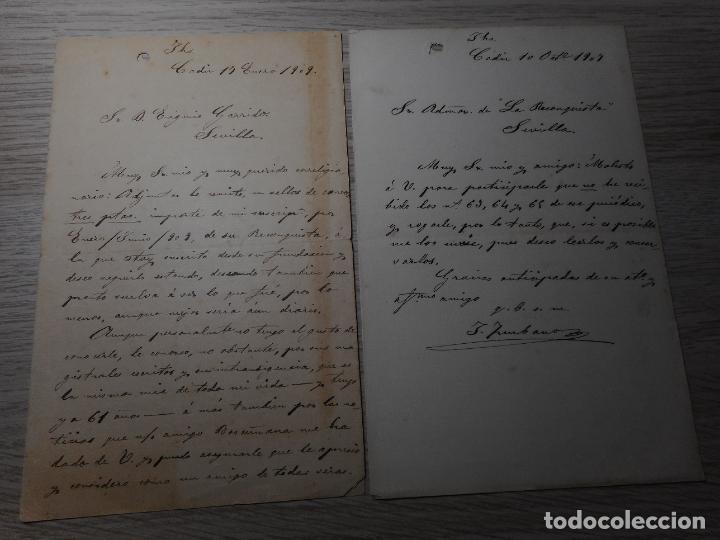 Jhs
Cadiz 15 Enero 1909.
Sr. D. Eugenio Garrido
Sevilla.
Muy Sr. mio y muy querido correligio
nario: Adjunto le remito, en sellos de correo,
tres ptas. importe de mi suscripn, por
Enero/Junio/909, de su Reconquista, á
la que estoy suscrito desde su fundación y
deseo seguirlo estando, deseando tambien que
pronto vuelva á ser lo que fué, por lo
menos, aunque mejor seria aún diario.
Aunque personalmente no tengo el gusto de
conocerle, le conozco, no obstante, por sus ma
gistrales escritos y su intransigencia, que es
la misma mia de toda mi vida — y tengo
ya 61 años — á más tambien por las no
ticias que n/o amigo me ha
dado de V. y puedo asegurarle que le aprecio
y considero como un amigo de todas veras.
Jhs
Cadiz 10 Octe 1909
Sr. Admor. de "La Reconquista"
Sevilla.
Muy Sr. mio y amigo: Molesto
á V. para participarle que no he reci
bido los nos 63, 64 y 65 de su periódico,
y rogarle, por lo tanto, que, si es posible
me los envie, pues deseo leerlos y conser
varlos.
Gracias anticipadas de su atto y
afmo amigo
q. b. s. m.
todocoleccion.net